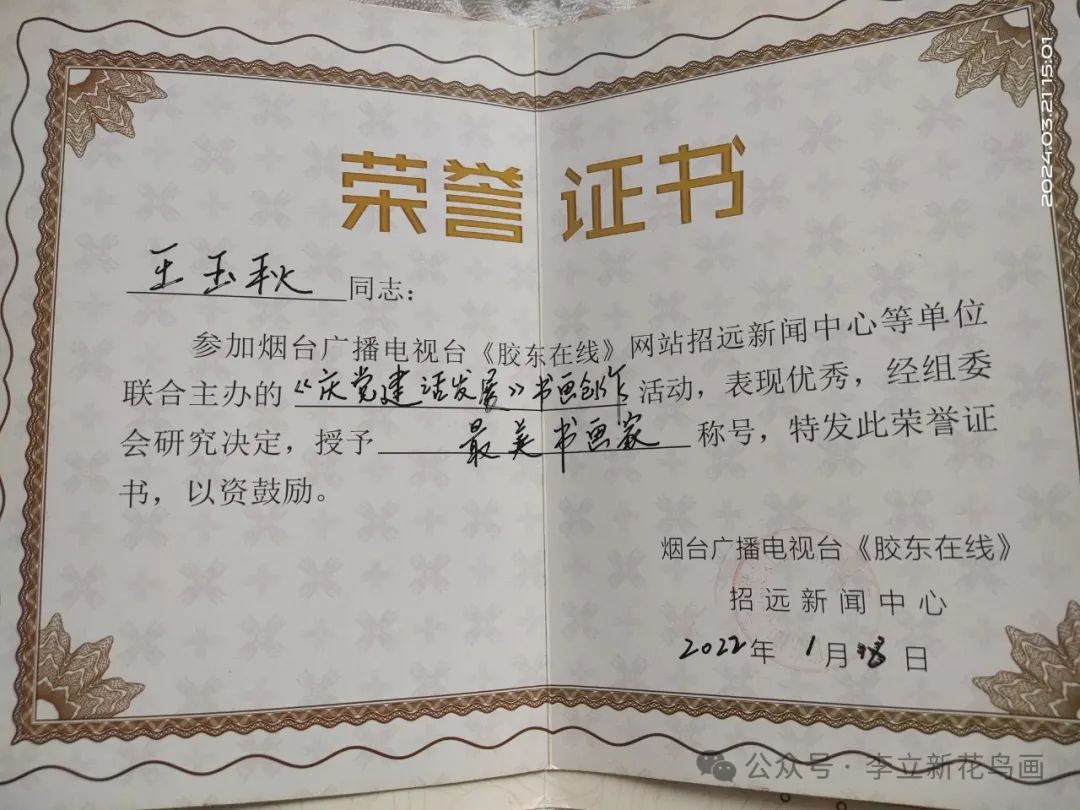 荣誉证书
王玉秋同志：
参加烟台广播电视台《胶东在线》网站招远新闻中心等单位
联合主办的“庆党建话发展”书画创作活动，表现优秀，经组委
会研究决定，授予最美书画家称号，特发此荣誉证
书，以资鼓励。
烟台广播电视台《胶东在线》
招远新闻中心
2022年1月日
2024.03.21 15:01
公众号·李立新花鸟画